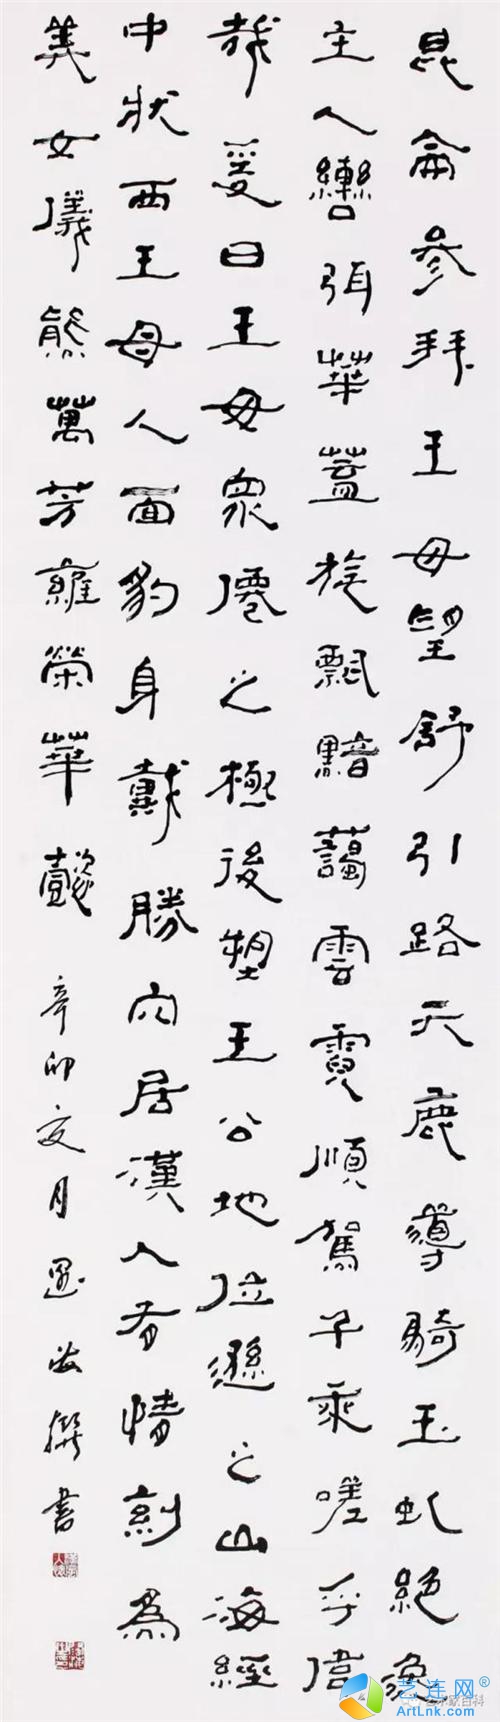 昆侖參拜王母望舒引路天鹿導騎玉虬絕
主人轡弭華蓋旌飄黯藹雲霓順駕予乘嗟乎偉
哉爰曰王母眾僊之極後塑王公地位遜之山海經
中狀西王母人面豹身戴勝穴居漢人有情刻為
美女儀態萬芳雍榮華懿 辛卯夏月 撰書
艺连网®
ArtLnk.com